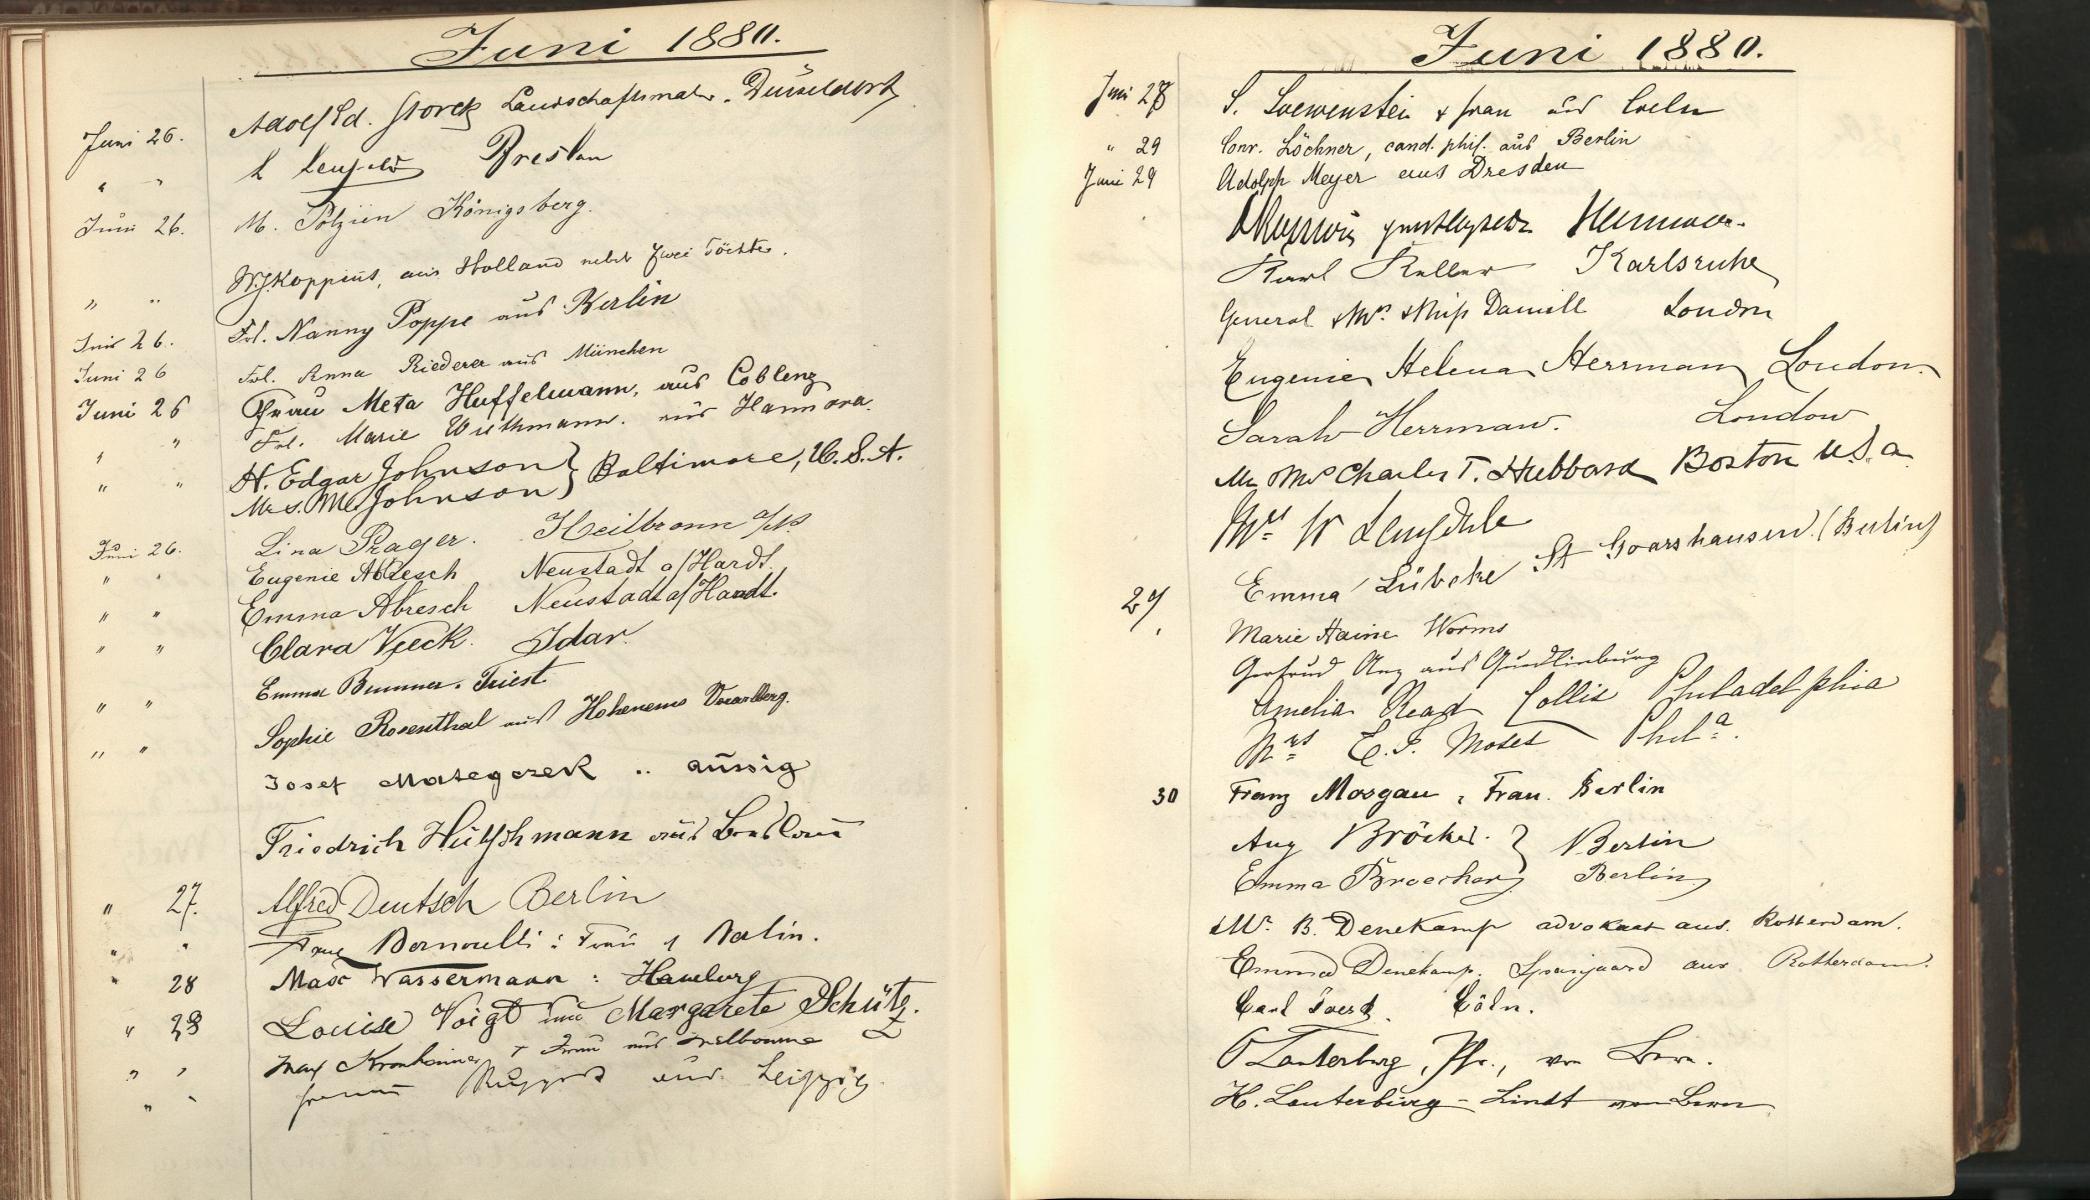 Juni 1880.
Juni 26. Adolf Ed. Storck Landschaftsmaler. Düsseldorf
" " L Breslau
Juni 26. M. Polzien Königsberg.
" " W.J. Koppius, aus Holland nebst zwei Töchter.
Juni 26. Frl. Nanny Poppe aus Berlin
Juni 26 Frl. Anna Riederer aus München
Juni 26 Frau Meta Huffelmann, aus Coblenz
" " Frl. Marie Wuthmann. aus Hannover.
" " H. Edgar Johnson } Baltimore, U.S.A.
Mrs. Johnson }
Juni 26. Lina Prager. Heilbronn a/N
" " Eugenie Abresch Neustadt a/Hardt.
" " Emma Abresch Neustadt a/Haardt.
" " Clara Veeck. Idar.
" " Emma Brunner. Triest
" " Sophie Rosenthal aus Hohenems Vorarlberg.
Josef Mategczek .. aussig
Friedrich Hütschmann aus Breslau
" 27. Alfred Deutsch Berlin
" " Bernoulli : Frau Berlin.
" 28 Max Wassermann : Hamburg
" 28 Louise Voigt und Margarete Schütz.
" " Max Kronheimer + Frau aus Melbourne
" " aus Leipzig.
Juni 1880.
Juni 28 S. Loewenstein & frau aus Coeln
" 29 Conr. Löchner, cand. phil. aus Berlin
Juni 29 Adolph Meyer aus Dresden
Hannover.
Karl Keller Karlsruhe
General & Mrs. & Miss Daniell London
Eugenie Helena Herrman London.
Sarah Herrman. London
Mr Mrs Charles T. Hubbard Boston U.S.a.
Mrs W
29 Emma Lübcke St Goarshausen. (Berlin)
Marie Haine Worms
Gertrud aus Quedlinburg
Amelia Read Collis Philadelphia
Mrs E. S. Moses Phila.
30 Franz Mosgau, Frau. Berlin
Aug Bröcker. } Berlin
Emma Broecker } Berlin
Mr. B. Denekamp advokaat aus. Rotterdam.
Emma Denekamp. Spanjaard aus Rotterdam.
Carl Cöln.
Lauterburg, Pfr., von Bern.
H. Lauterburg - Lindt von Bern